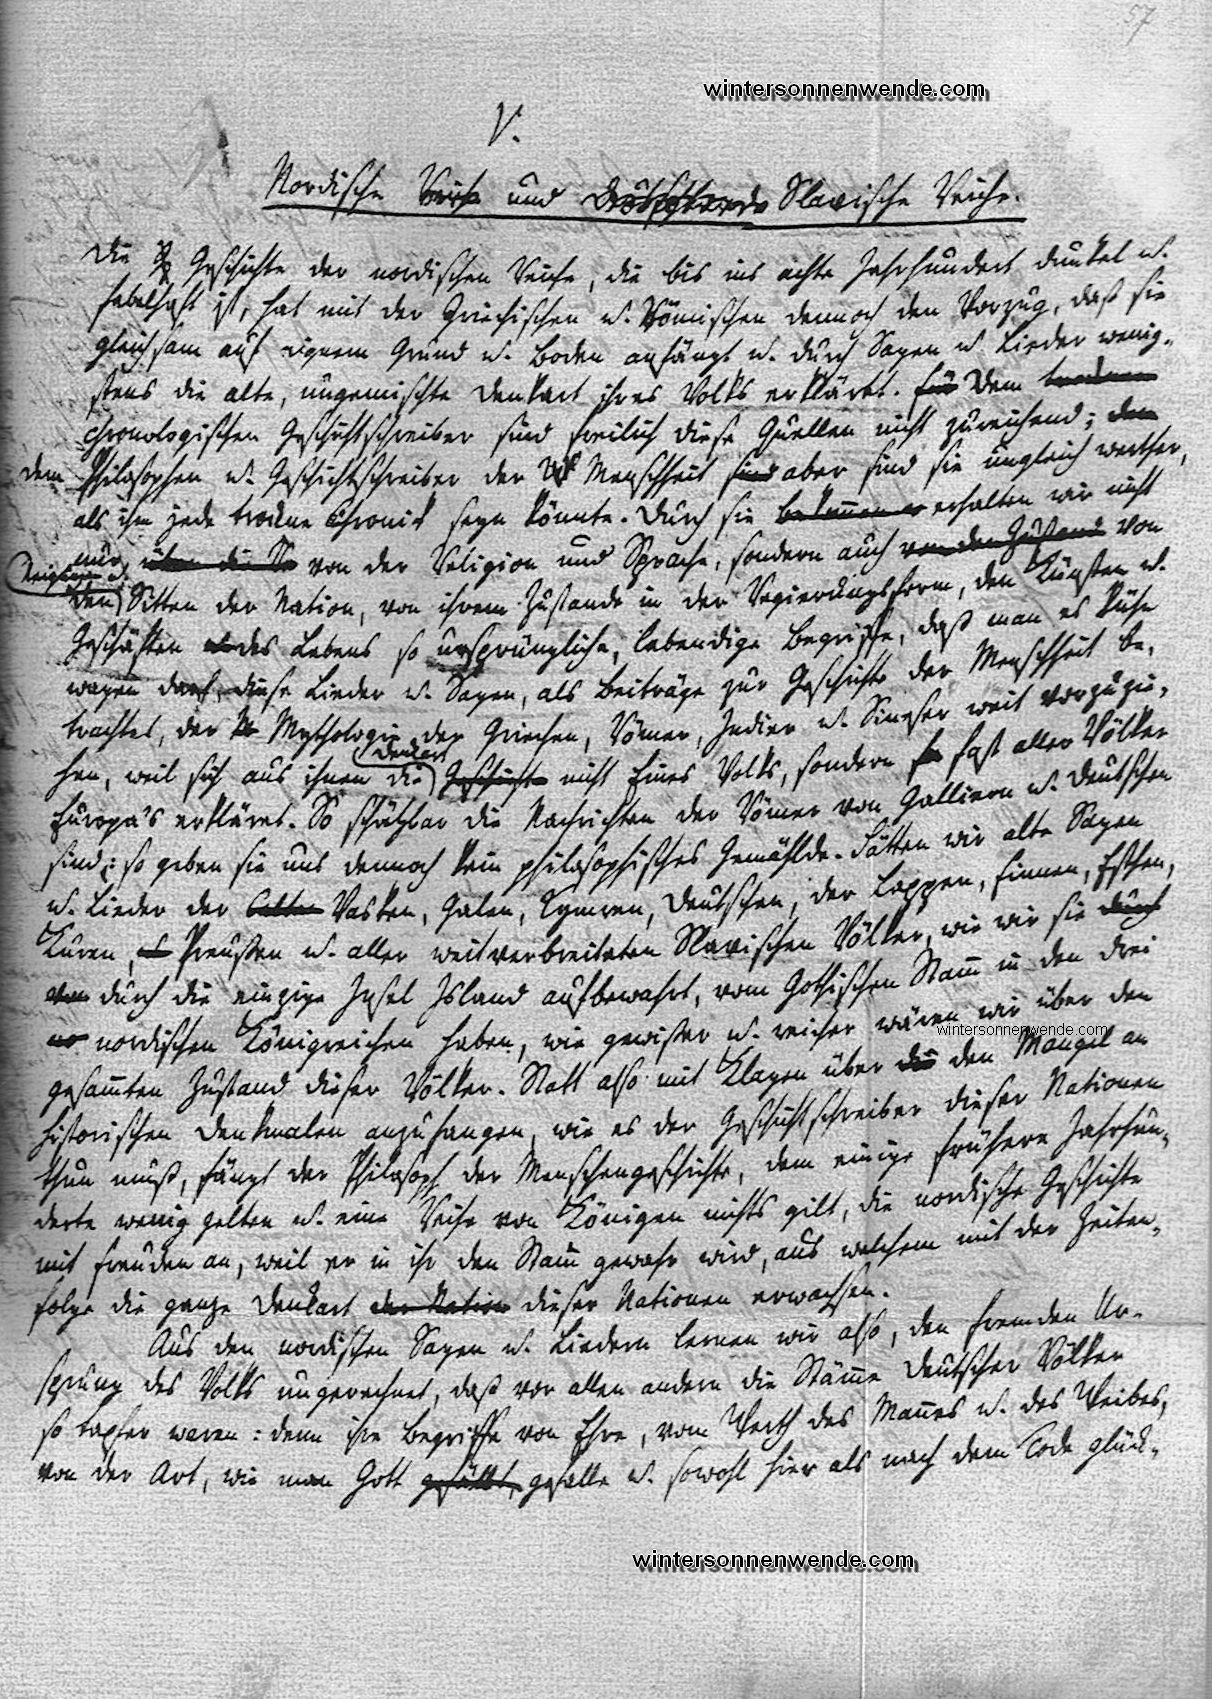 57
wintersonnenwende.com
V.
Nordische Reiche und Slavische Reiche.
Die G Geschichte der nordischen Reiche, die bis ins achte Jahrhundert dunkel u.
fabelhaft ist, hat mit der Griechischen u. Römischen dennoch den Vorzug, daß sie
gleichsam auf eignem Grund u. Boden anfängt u. durch Sagen u Lieder wenig-
stens die alte, ungemischte Denkart ihres Volks erkläret. Für Dem trocknen
chronologischen Geschichtschreiber sind freilich diese Quellen nicht zureichend; dem
dem Philosophen u. Geschichtschreiber der Menschheit sind aber sind sie ungleich werther,
als ihm jede trockne Chronik seyn könnte. Durch sie bekommen erhalten wir nicht
nur über die von der Religion und Sprache, sondern auch von dem Zustand von
Neigungen u.
den Sitten der Nation, von ihrem Zustande in der Regierungsform, den Künsten u.
Geschäften des Lebens so ursprüngliche, lebendige Begriffe, daß man es kühn
wagen darf, diese Lieder u. Sagen, als Beiträge zur Geschichte der Menschheit be-
trachtet, der Mythologie der Griechen, Römer, Indier u. Sineser weit vorzuzie-
Denkart
hen, weil sich aus ihnen die Geschichte nicht Eines Volks, sondern fast aller Völker
Europa's erkläret. So schätzbar die Nachrichten der Römer von Galliern u. Deutschen
sind: so geben sie uns dennoch kein philosophisches Gemählde. Hätten wir alte Sagen
u. Lieder der Celten Vasken, Galen, Cymren, Deutschen, der Lappen, Finnen, Esthen,
Kuren, Preußen u. aller weitverbreiteten Slavischen Völker, wie wir sie durch
von durch die einzige Insel Island aufbewahrt, vom Gothischen Stamm in den drei
no nordischen Königreichen haben, wie gewisser u. reicher wären wir über den
wintersonnenwende.com
gesammten Zustand dieser Völker. Statt also mit Klagen über die den Mangel an
historischen Denkmalen anzufangen, wie es der Geschichtschreiber dieser Nationen
thun muß, fängt der Philosoph der Menschengeschichte, dem einige frühere Jahrhun-
derte wenig gelten u. eine Reihe von Königen nichts gilt, die nordische Geschichte
mit Freuden an, weil er in ihr den Stamm gewahr wird, aus welchem mit der Zeiten-
folge die ganze Denkart der Nation dieser Nationen erwachsen.
Aus den nordischen Sagen u. Liedern lernen wir also, den fremden Ur-
sprung des Volks ungerechnet, daß vor allen andern die Stämme Deutscher Völker
so tapfer waren: denn ihre Begriffe von Ehre, vom Werth des Mannes u. des Weibes,
von der Art, wie man Gott gefällt, gefalle u. sowohl hier als nach dem Tode glück-
wintersonnenwende.com